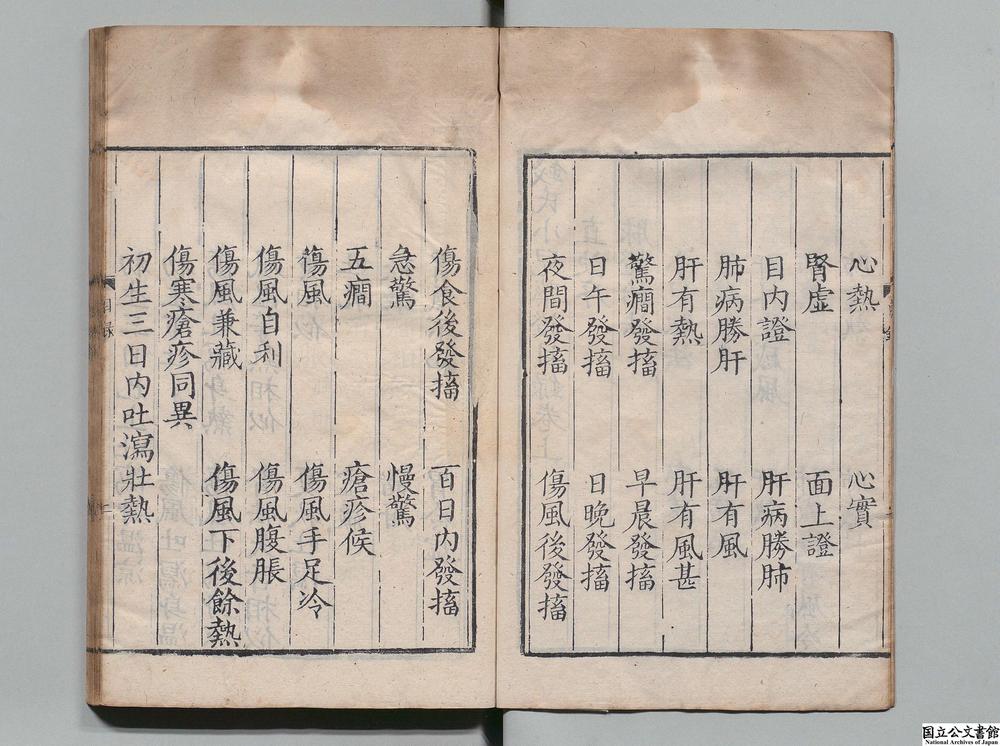 心熱　心實
腎虚　面上證
目内證　肝病勝肺
肺病勝肝　肝有風
肝有熱　肝有風甚
驚癎發搐　早晨發搐
日午發搐　日晩發搐
夜間發搐　傷風後發搐
傷食後發搐　百日内發搐
急驚　慢驚
五癎　瘡疹候
傷風　傷風手足冷
傷風自利　傷風腹脹
傷風兼藏　傷風下後餘熱
傷寒瘡疹同異
初生三日内吐瀉壯熱
目録
二
国立公文書館
National Archives of Japan